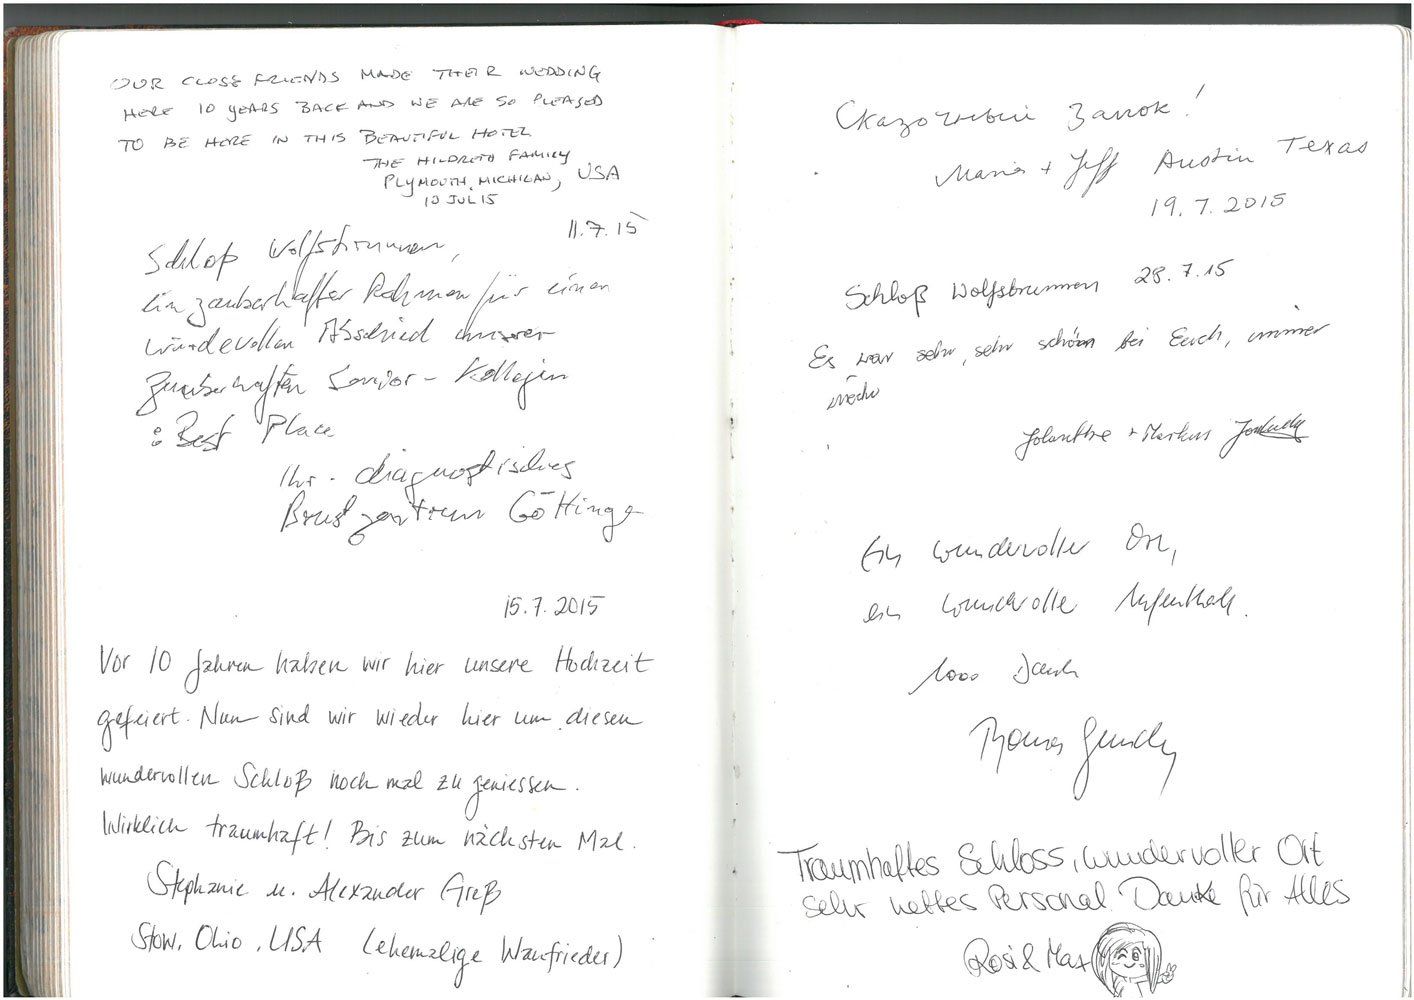 OUR CLOSE FRIENDS MADE THEIR WEDDING
HERE 10 YEARS BACK AND WE ARE SO PLEASED
TO BE HERE IN THIS BEAUTIFUL HOTEL
THE HILDRETH FAMILY
PLYMOUTH, MICHIGAN, USA
10 JUL 15
11.7.15
Schloß Wolfsbrunnen,
Ein zauberhafter Rahmen für einen
würdevollen Abschied unserer
zauberhaften Senior-Kollegin
: Best Place
Ihr - diagnostisches
Brustzentrum Göttingen
15.7.2015
Vor 10 Jahren haben wir hier unsere Hochzeit
gefeiert. Nun sind wir wieder hier um diesen
wundervollen Schloß noch mal zu geniessen.
Wirklich traumhaft! Bis zum nächsten Mal.
Stephanie u. Alexander Greß
Stow, Ohio, USA (ehemalige Wanfrieder)
Сказочный Замок!
Maria + Jeff Austin Texas
19.7.2015
Schloß Wolfsbrunnen 28.7.15
Es war sehr, sehr schön bei Euch, immer
wieder
Jolanthe + Markus
Ein wundervoller Ort,
ein wundervoller Aufenthalt.
1000 Dank
Thomas
Traumhaftes Schloss, wundervoller Ort
sehr nettes Personal Danke für Alles
Rosi & Max